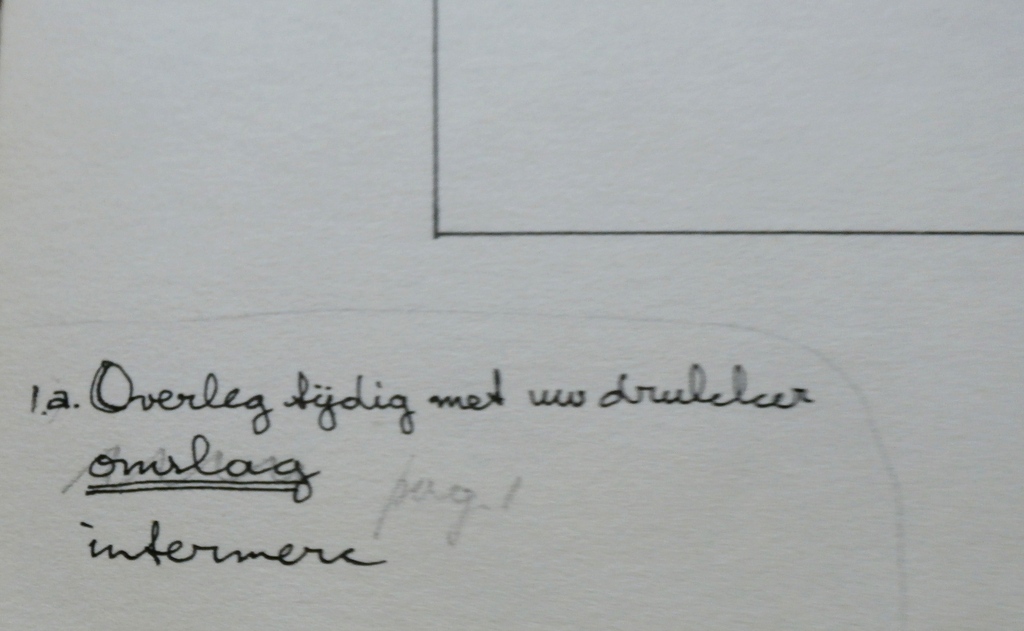 1.a. Overleg tijdig met uw drukker
omslag
pag. 1
intermerc